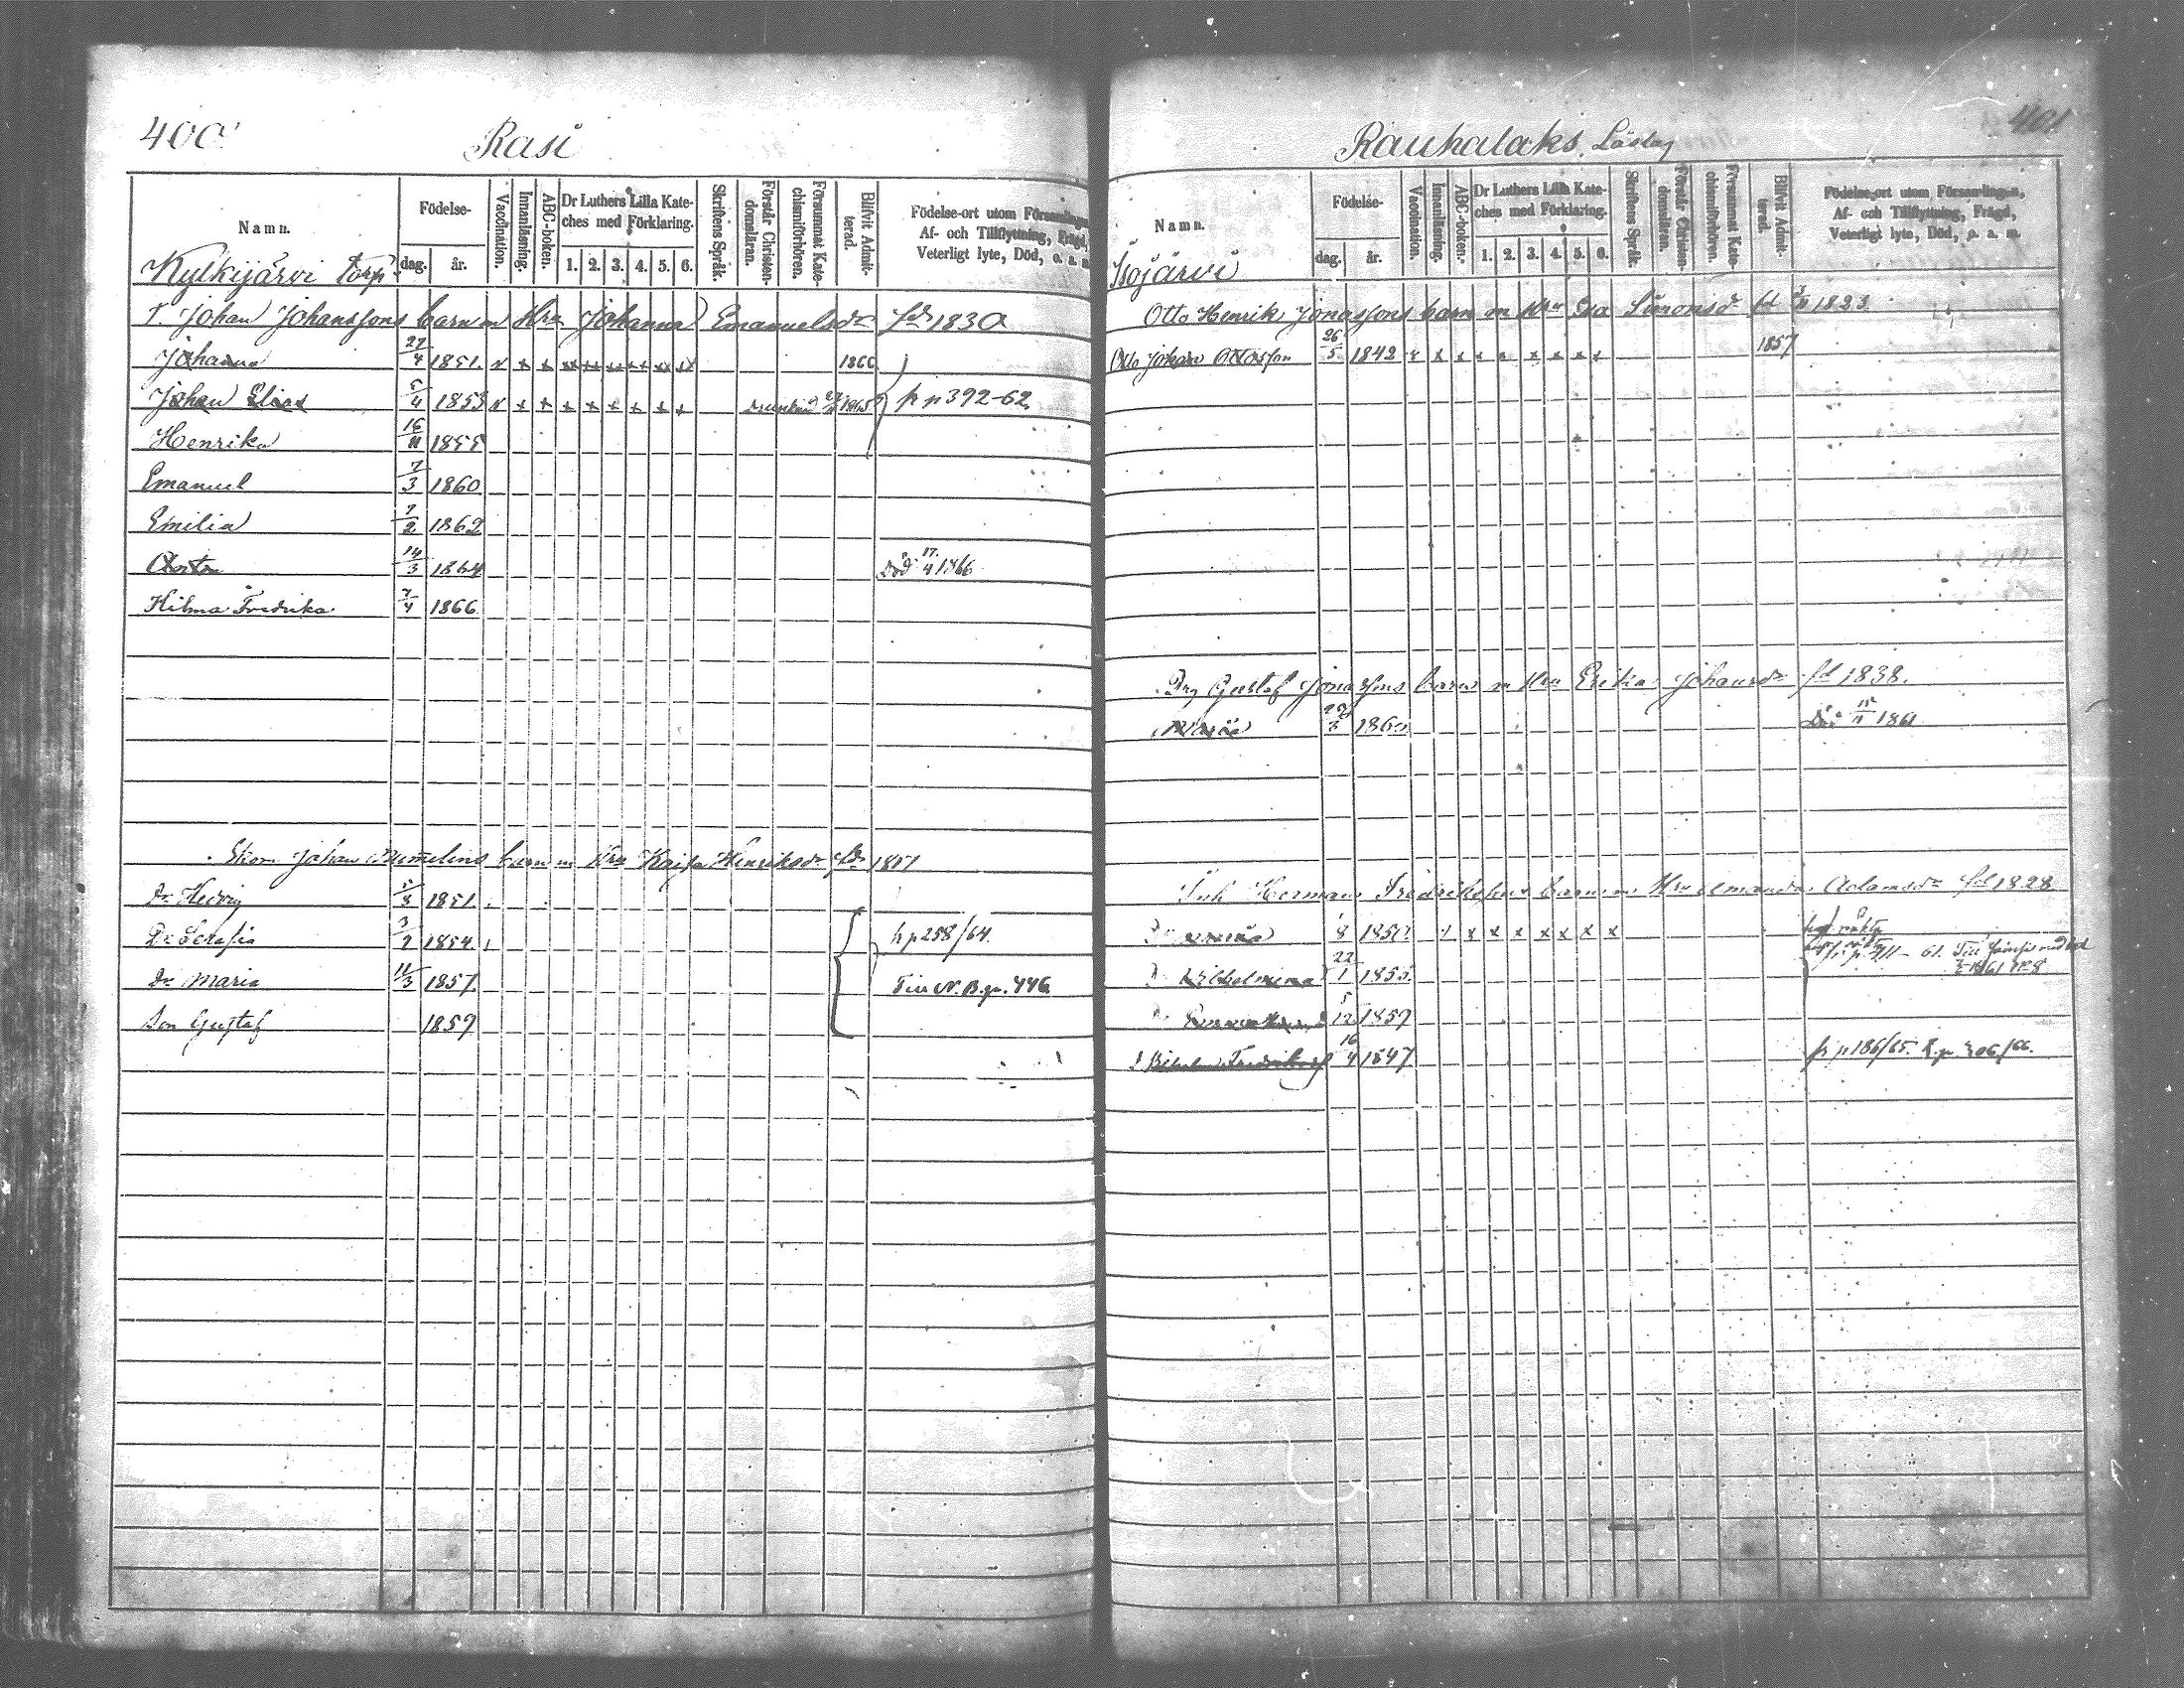 400
Rasi
Namn.
Födelse-
dag.
år.
Vaccination.
Innanläsning.
ABC-boken.
Dr Luthers Lilla Kate-
ches med Förklaring.
1. 2. 3. 4. 5. 6.
Skriftens Språk.
Förstår Christen-
domsläran.
Försummat Kate-
chismiförhören.
Blifvit Admit-
terad.
Födelse-ort utom Församlingen,
Af- och Tillflyttning, Frägd,
Veterligt lyte, Död, o. a. m.
Kylkijärvi torp
T. Johan Johanssons barn m Hru Johanna Emanuelsdr fdr 1830
Johanna 27/4 1851. v x x x x x x x x 1866
Johan Elias 5/4 1853 v x x x x x x x x 1865 fr p 392-62
Henrika 16/11 1855
Emanuel 7/3 1860
Emilia 7/2 1862
14/3 1864 Död 17/4 1866
Hilma Fredrika 7/4 1866
Johan barn m Hru Kajsa Henriksdr fdr
Dr Hedvig 1851.
Dr Serafia 3/2 1854. fr p 258/64.
Dr Maria 11/3 1857. Till N. B. p. 446
Son Gustaf 1859
401
Rauhalaks Läslag
Namn.
Födelse-
dag.
år.
Vaccination.
Innanläsning.
ABC-boken.
Dr Luthers Lilla Kate-
ches med Förklaring.
1. 2. 3. 4. 5. 6.
Skriftens Språk.
Förstår Christen-
domsläran.
Försummat Kate-
chismiförhören.
Blifvit Admit-
terad.
Födelse-ort utom Församlingen,
Af- och Tillflyttning, Frägd,
Veterligt lyte, Död, o. a. m.
Isojärvi
Otto Henrik Jonassons barn m Hru Eva Simonsdr fd 1823
Otto Johan Ottosson 26/5 1842 x x x x x x x x 1857
Gustaf Jonassons barn m Hru Erika Johansdr fd 1838.
Maria 1860 Död 1861
Inh Herman Fredrikssons barn m Hru Amanda Adamsdr fd 1828
8 1850 x x x x x x x
Wilhelmina 22/1 1855
5/12 1857
16/4 1847 fr p 186/65. 306/66.